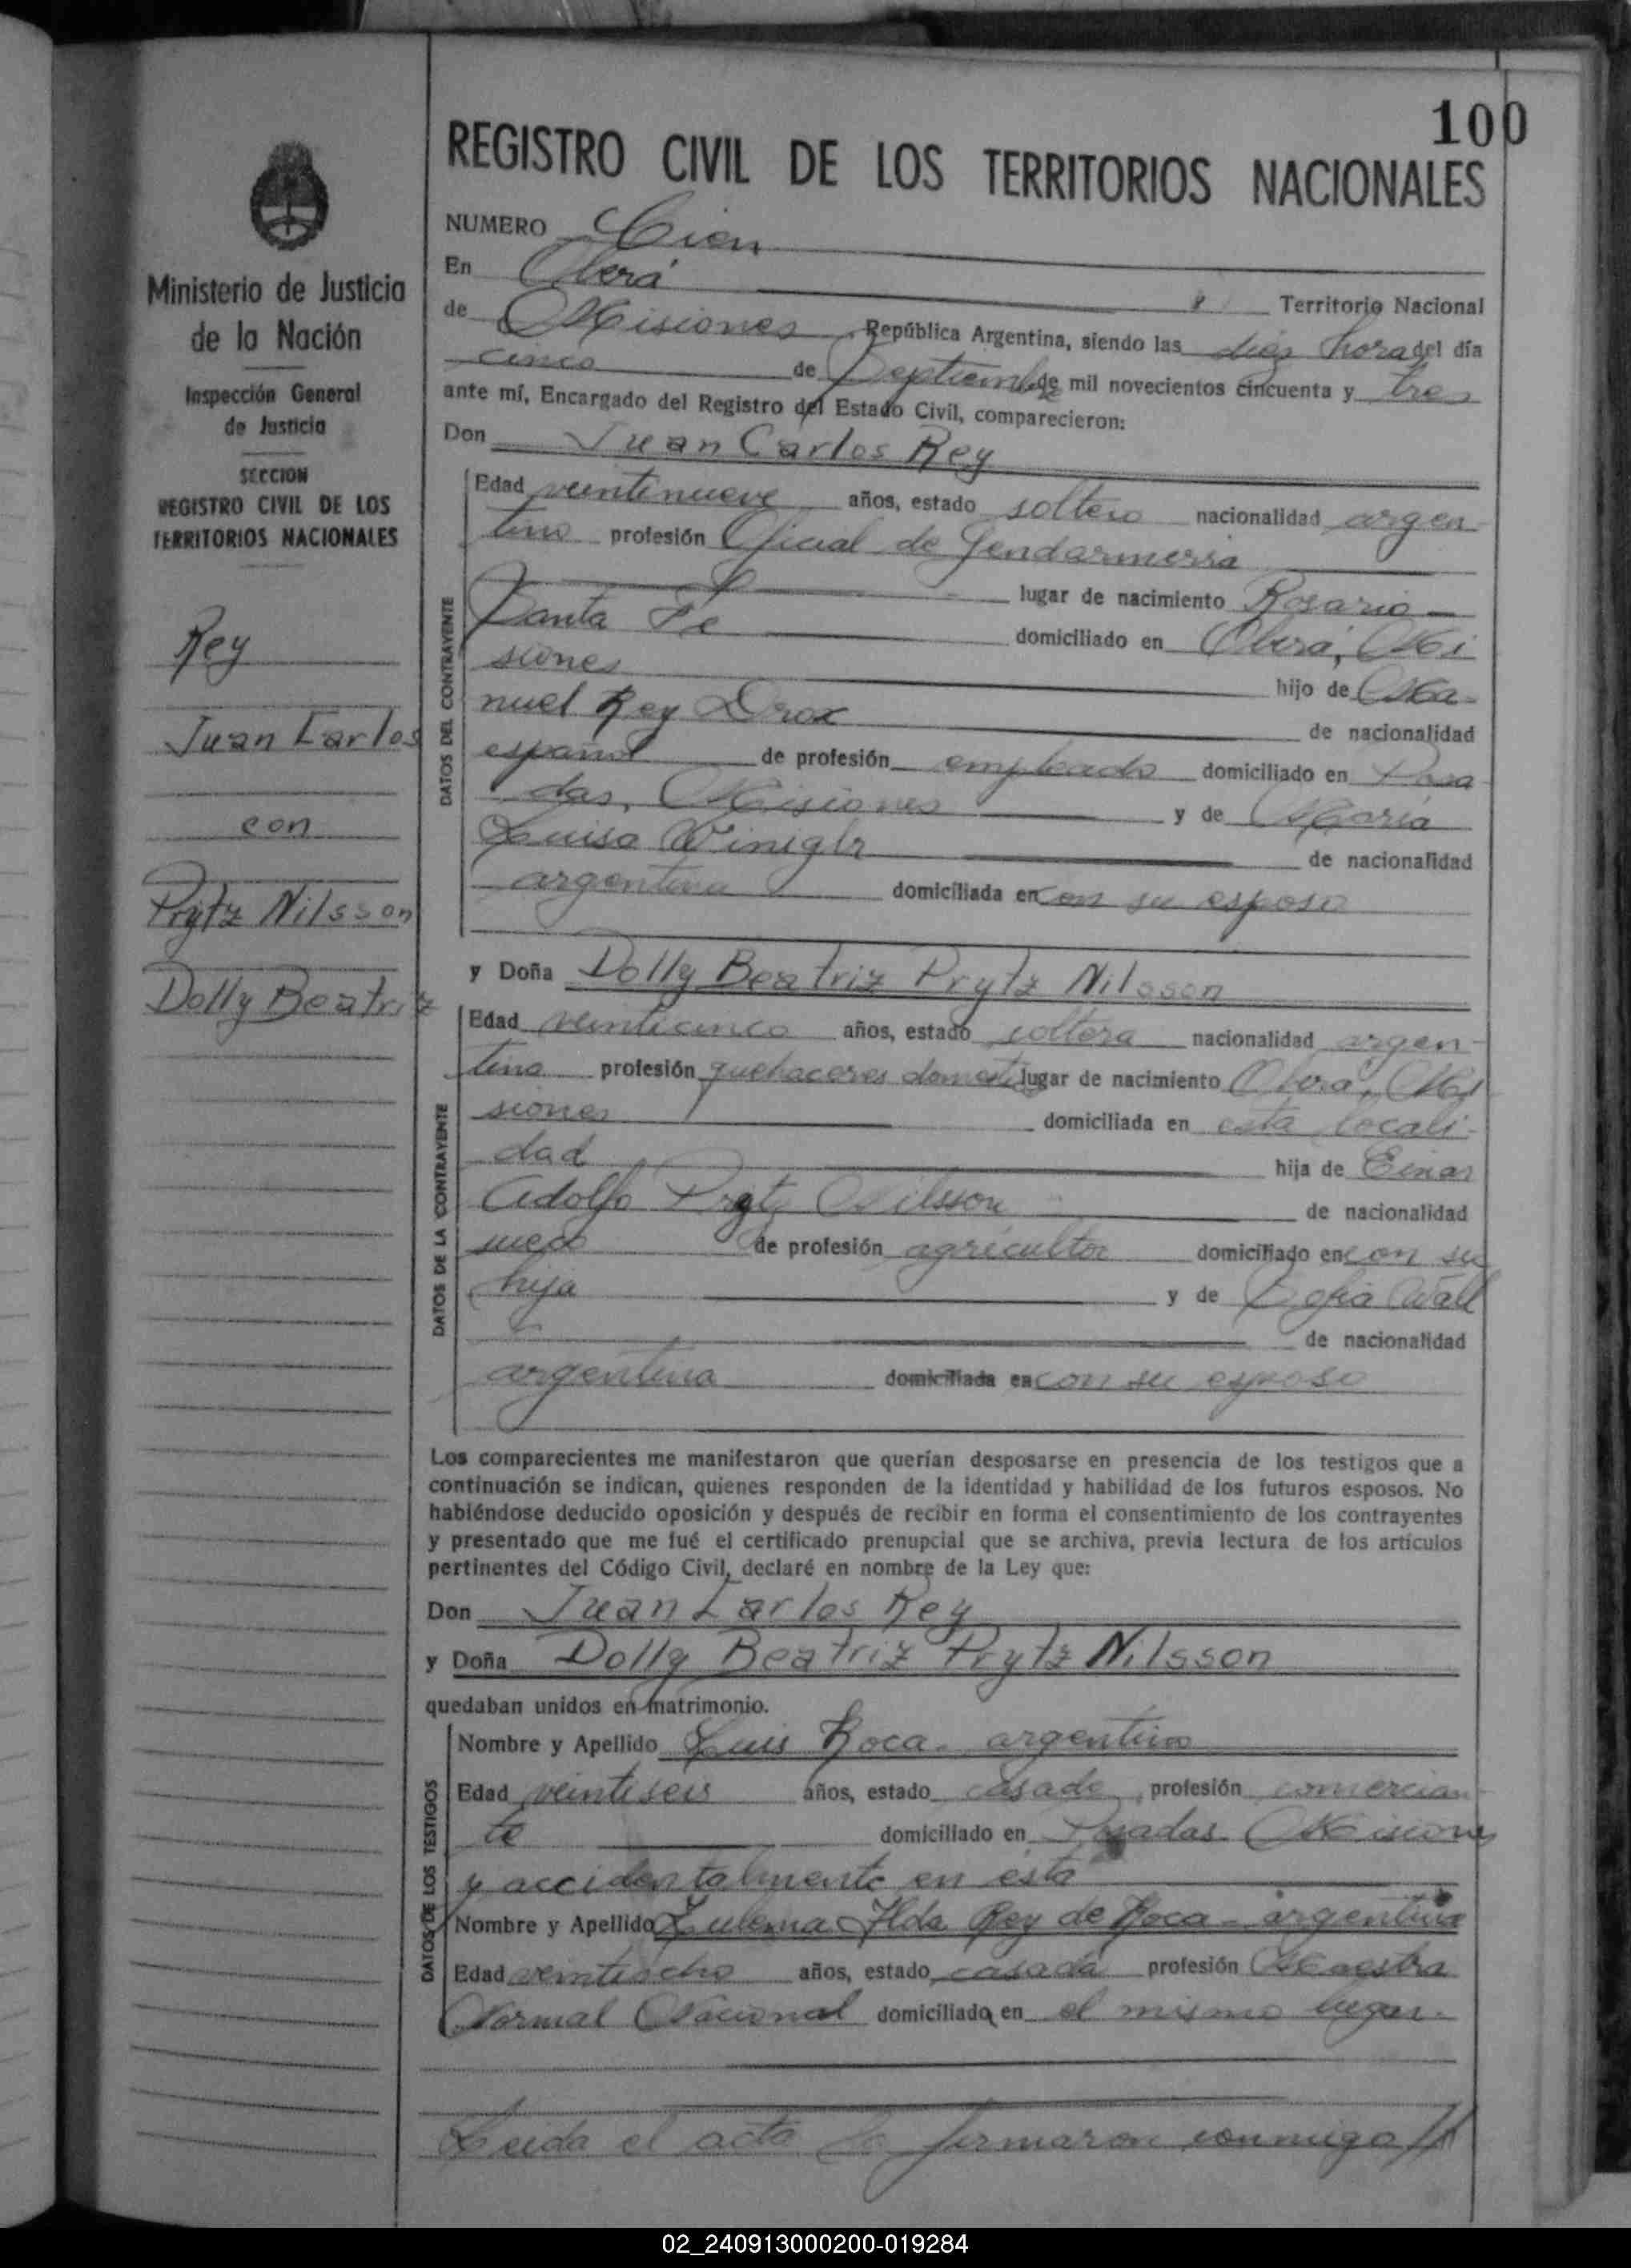 100
REGISTRO CIVIL DE LOS TERRITORIOS NACIONALES
Ministerio de Justicia
de la Nación
Inspección General
de Justicia
SECCION
REGISTRO CIVIL DE LOS
TERRITORIOS NACIONALES
Rey
Juan Carlos
con
Prytz Nilsson
Dolly Beatriz
NUMERO Cien
En Oberá Territorio Nacional
de Misiones República Argentina, siendo las diez horas del día
cinco de Septiembre de mil novecientos cincuenta y tres
ante mí, Encargado del Registro del Estado Civil, comparecieron:
Don Juan Carlos Rey
DATOS DEL CONTRAYENTE
Edad veintinueve años, estado soltero nacionalidad argen-
tino profesión Oficial de Gendarmeria
lugar de nacimiento Rosario
Santa Fe domiciliado en Oberá, Mi
siones hijo de Ma-
nuel Rey Drox de nacionalidad
español de profesión empleado domiciliado en Posa
das, Misiones y de María
Luisa de nacionalidad
argentina domiciliada en con su esposo
y Doña Dolly Beatriz Prytz Nilsson
DATOS DE LA CONTRAYENTE
Edad veinticinco años, estado soltera nacionalidad argen-
tina profesión quehaceres domesti lugar de nacimiento Oberá, Mi
siones domiciliada en esta locali-
dad hija de Einar
Adolfo Prytz Nilsson de nacionalidad
sueco de profesión agricultor domiciliado en con su
hija y de Sofia Wall
de nacionalidad
argentina domiciliada en con su esposo
Los comparecientes me manifestaron que querían desposarse en presencia de los testigos que a
continuación se indican, quienes responden de la identidad y habilidad de los futuros esposos. No
habiéndose deducido oposición y después de recibir en forma el consentimiento de los contrayentes
y presentado que me fué el certificado prenupcial que se archiva, previa lectura de los artículos
pertinentes del Código Civil, declaré en nombre de la Ley que:
Don Juan Carlos Rey
y Doña Dolly Beatriz Prytz Nilsson
quedaban unidos en matrimonio.
DATOS DE LOS TESTIGOS
Nombre y Apellido Luis Roca - argentino
Edad veintiseis años, estado casado, profesión comercian-
te domiciliado en Posadas Misiones
y accidentalmente en ésta
Nombre y Apellido Zulema Ilda Rey de Roca - argentina
Edad veintiocho años, estado casada profesión Maestra
Normal Nacional domiciliada en el mismo lugar.
Leida el acta la firmaron conmigo //
02_240913000200-019284